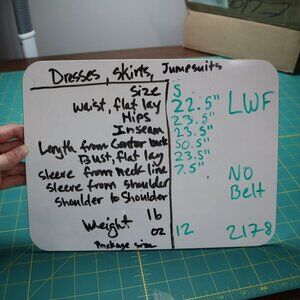 Dresses, skirts, Jumpsuits
Size S
Waist, flat lay 22.5" LWF
Hips 23.5"
Inseam 23.5"
Length from Center back 50.5"
Bust, flat lay 23.5"
sleeve from Neck line 7.5"
sleeve from shoulder NO
shoulder to shoulder Belt
Weight lb
oz 12 2178
Package size